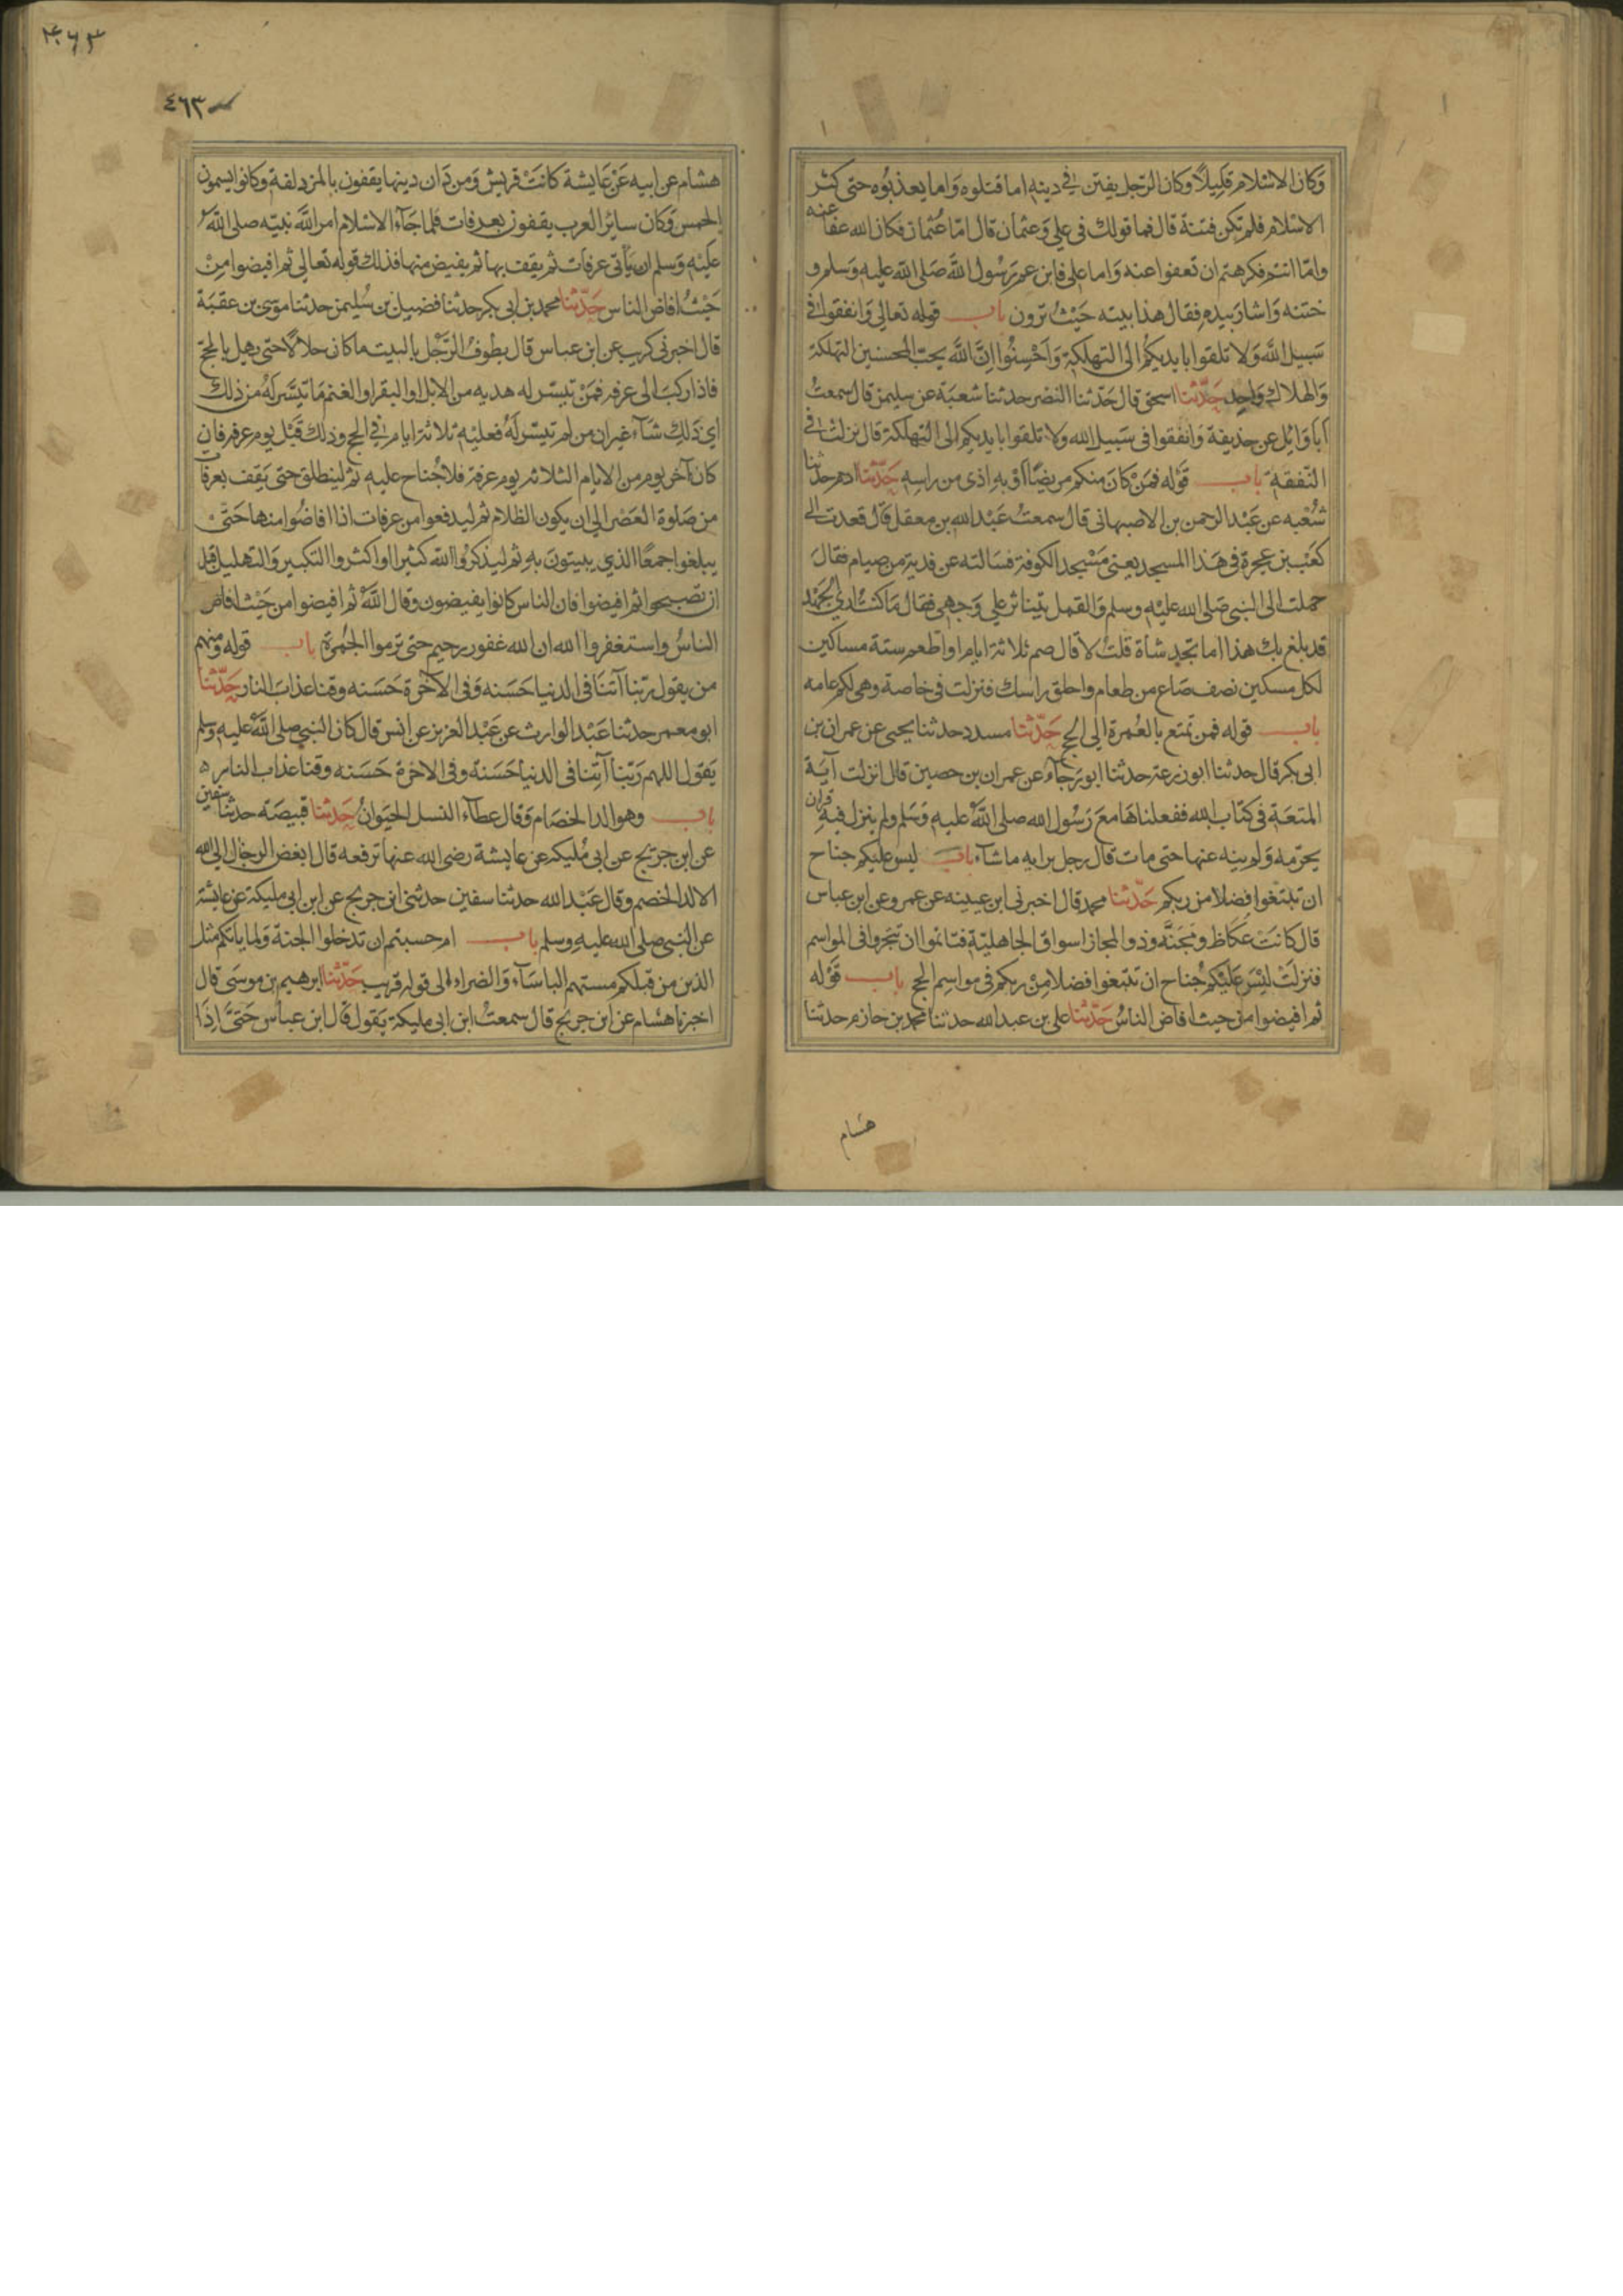 وكان الاسلام قليلا وكان الرجل يفتن في دينه اما قتلوه واما يعذبوه حتى كثر
الاسلام فلم تكن فتنة قال فما قولك في علي وعثمان قال امّا عثمان فكان الله عفا عنه
وامّا انتم فكرهتم ان تعفوا عنه واما علي فابن عم رسول الله صلى الله عليه وسلم و
ختنه واشار بيده فقال هذا بيته حيث ترون باب قوله تعالى وانفقوا في
سبيل الله ولا تلقوا بايديكم الى التهلكة واحسنوا ان الله يحب المحسنين التهلكة
والهلاك واحد حدّثنا اسحق قال حدّثنا النضر حدثنا شعبة عن سليمن قال سمعت
ابا وايل عن حذيفة وانفقوا في سبيل الله ولا تلقوا بايديكم الى التهلكة قال نزلت في
النفقة باب قوله فمن كان منكم مريضا او به اذى من راسه حدّثنا ادم حدثنا
شعبه عن عبد الرحمن بن الاصبهاني قال سمعت عبد الله بن معقل قال قعدت الى
كعب بن عجرة في هذا المسجد يعني مسجد الكوفة فسالته عن فدية من صيام فقال
حملت الى النبي صلى الله عليه وسلم والقمل يتناثر على وجهي فقال ما كنت ارى الجهد
قد بلغ بك هذا اما تجد شاة قلت لا قال صم ثلاثة ايام او اطعم ستة مساكين
لكل مسكين نصف صاع من طعام واحلق راسك فنزلت في خاصة وهي لكم عامه
باب قوله فمن تمتع بالعمرة الى الحج حدّثنا مسدد حدثنا يحيى عن عمران بن
ابي بكر قال حدثنا ابو رجآء عن عمران بن حصين قال انزلت آية
المتعة في كتاب الله ففعلناها مع رسول الله صلى الله عليه وسلم ولم ينزل فيه قران
يحرّمه ولم ينه عنها حتى مات قال رجل برايه ما شآء باب ليس عليكم جناح
ان تبتغوا فضلا من ربكم حدّثنا محمد قال اخبرني ابن عيينه عن عمرو عن ابن عباس
قال كانت عكاظ ومجنّه وذو المجاز اسواق الجاهليّة فتاثموا ان يتجروا في المواسم
فنزلت ليس عليكم جناح ان تبتغوا فضلا من ربكم في مواسم الحج باب قوله
ثم افيضوا من حيث افاض الناس حدّثنا علي بن عبد الله حدثنا محمد بن خازم حدثنا
هشام
٤٦٣
٤٦٣
هشام عن ابيه عن عايشة كانت قريش ومن دان دينها يقفون بالمزدلفة وكانوا يسمون
الحمس وكان ساير العرب يقفون بعرفات فلما جآء الاسلام امر الله نبيّه صلى الله
عليه وسلم ان ياتي عرفات ثم يقف بها ثم يفيض منها فذلك قوله تعالى ثم افيضوا من
حيث افاض الناس حدّثنا محمد بن ابي بكر حدثنا فضيل بن سليمن حدثنا موسى بن عقبة
قال اخبرني كريب عن ابن عباس قال يطوف الرجل بالبيت ما كان حلالا حتى يهل بالحج
فاذا ركب الى عرفه فمن تيسر له هديه من الابل او البقر او الغنم ما تيسّر له من ذلك
اي ذلك شآء غير ان من لم تيسّر له فعليه ثلاثة ايام في الحج وذلك قبل يوم عرفه فان
كان آخر يوم من الايام الثلاثه يوم عرفة فلا جناح عليه ثم لينطلق حتى يقف بعرفات
من صلوة العصر الى ان يكون الظلام ثم ليدفعوا من عرفات اذا افاضوا منها حتّى
يبلغوا جمعا الذي يبيتون به ثم ليذكروا الله كثيرا او اكثروا التكبير والتهليل قبل
ان تصبحوا ثم افيضوا فان الناس كانوا يفيضون وقال الله ثم افيضوا من حيث افاض
الناس واستغفروا الله ان الله غفور رحيم حتى ترموا الجمرة باب قوله ومنهم
من يقول ربّنا آتنا في الدنيا حسنه وفي الآخرة حسنه وقنا عذاب النار حدّثنا
ابو معمر حدثنا عبد الوارث عن عبد العزيز عن انس قال كان النبي صلى الله عليه وسلم
يقول اللهم ربّنا آتنا في الدنيا حسنة وفي الاخرة حسنه وقنا عذاب النار
باب وهو الد الخصام وقال عطآء النسل الحيوان حدّثنا قبيصة حدثنا سفين
عن ابن جريج عن ابي مليكه عن عايشة رضي الله عنها ترفعه قال ابغض الرجال الى الله
الالد الخصم وقال عبد الله حدثنا سفين حدثني ابن جريج عن ابن ابي مليكة عن عائشة
عن النبي صلى الله عليه وسلم باب ام حسبتم ان تدخلوا الجنة ولما ياتكم مثل
الذين من قبلكم مستهم الباسآء والضراء الى قوله قريب حدّثنا ابرهيم بن موسى قال
اخبرنا هشام عن ابن جريج قال سمعت ابن ابي مليكة يقول قال ابن عباس حتّى اذا